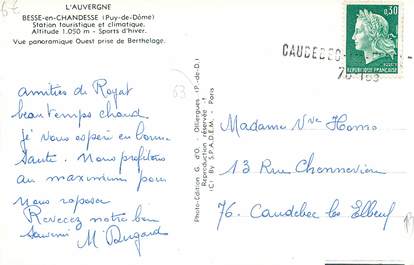 6€
L'AUVERGNE
BESSE-en-CHANDESSE (Puy-de-Dôme)
Station touristique et climatique.
Altitude 1.050 m - Sports d'hiver.
Vue panoramique Ouest prise de Berthelage.
amitiés de Royat
beau temps chaud
je vous espère en bonne
santé. Nous profitons
au maximum pour
nous reposer
Recevez notre bon
souvenir M Dangard
63
Photo-Edition G. d'O. - Olliergues (P.-de-D.)
Reproduction réservée
(C) By S.P.A.D.E.M. - Paris
0,30
REPUBLIQUE FRANCAISE
CAUDEBEC
76-165
Madame Vve Homo
13 Rue Chennevière
76. Caudebec les Elbeuf